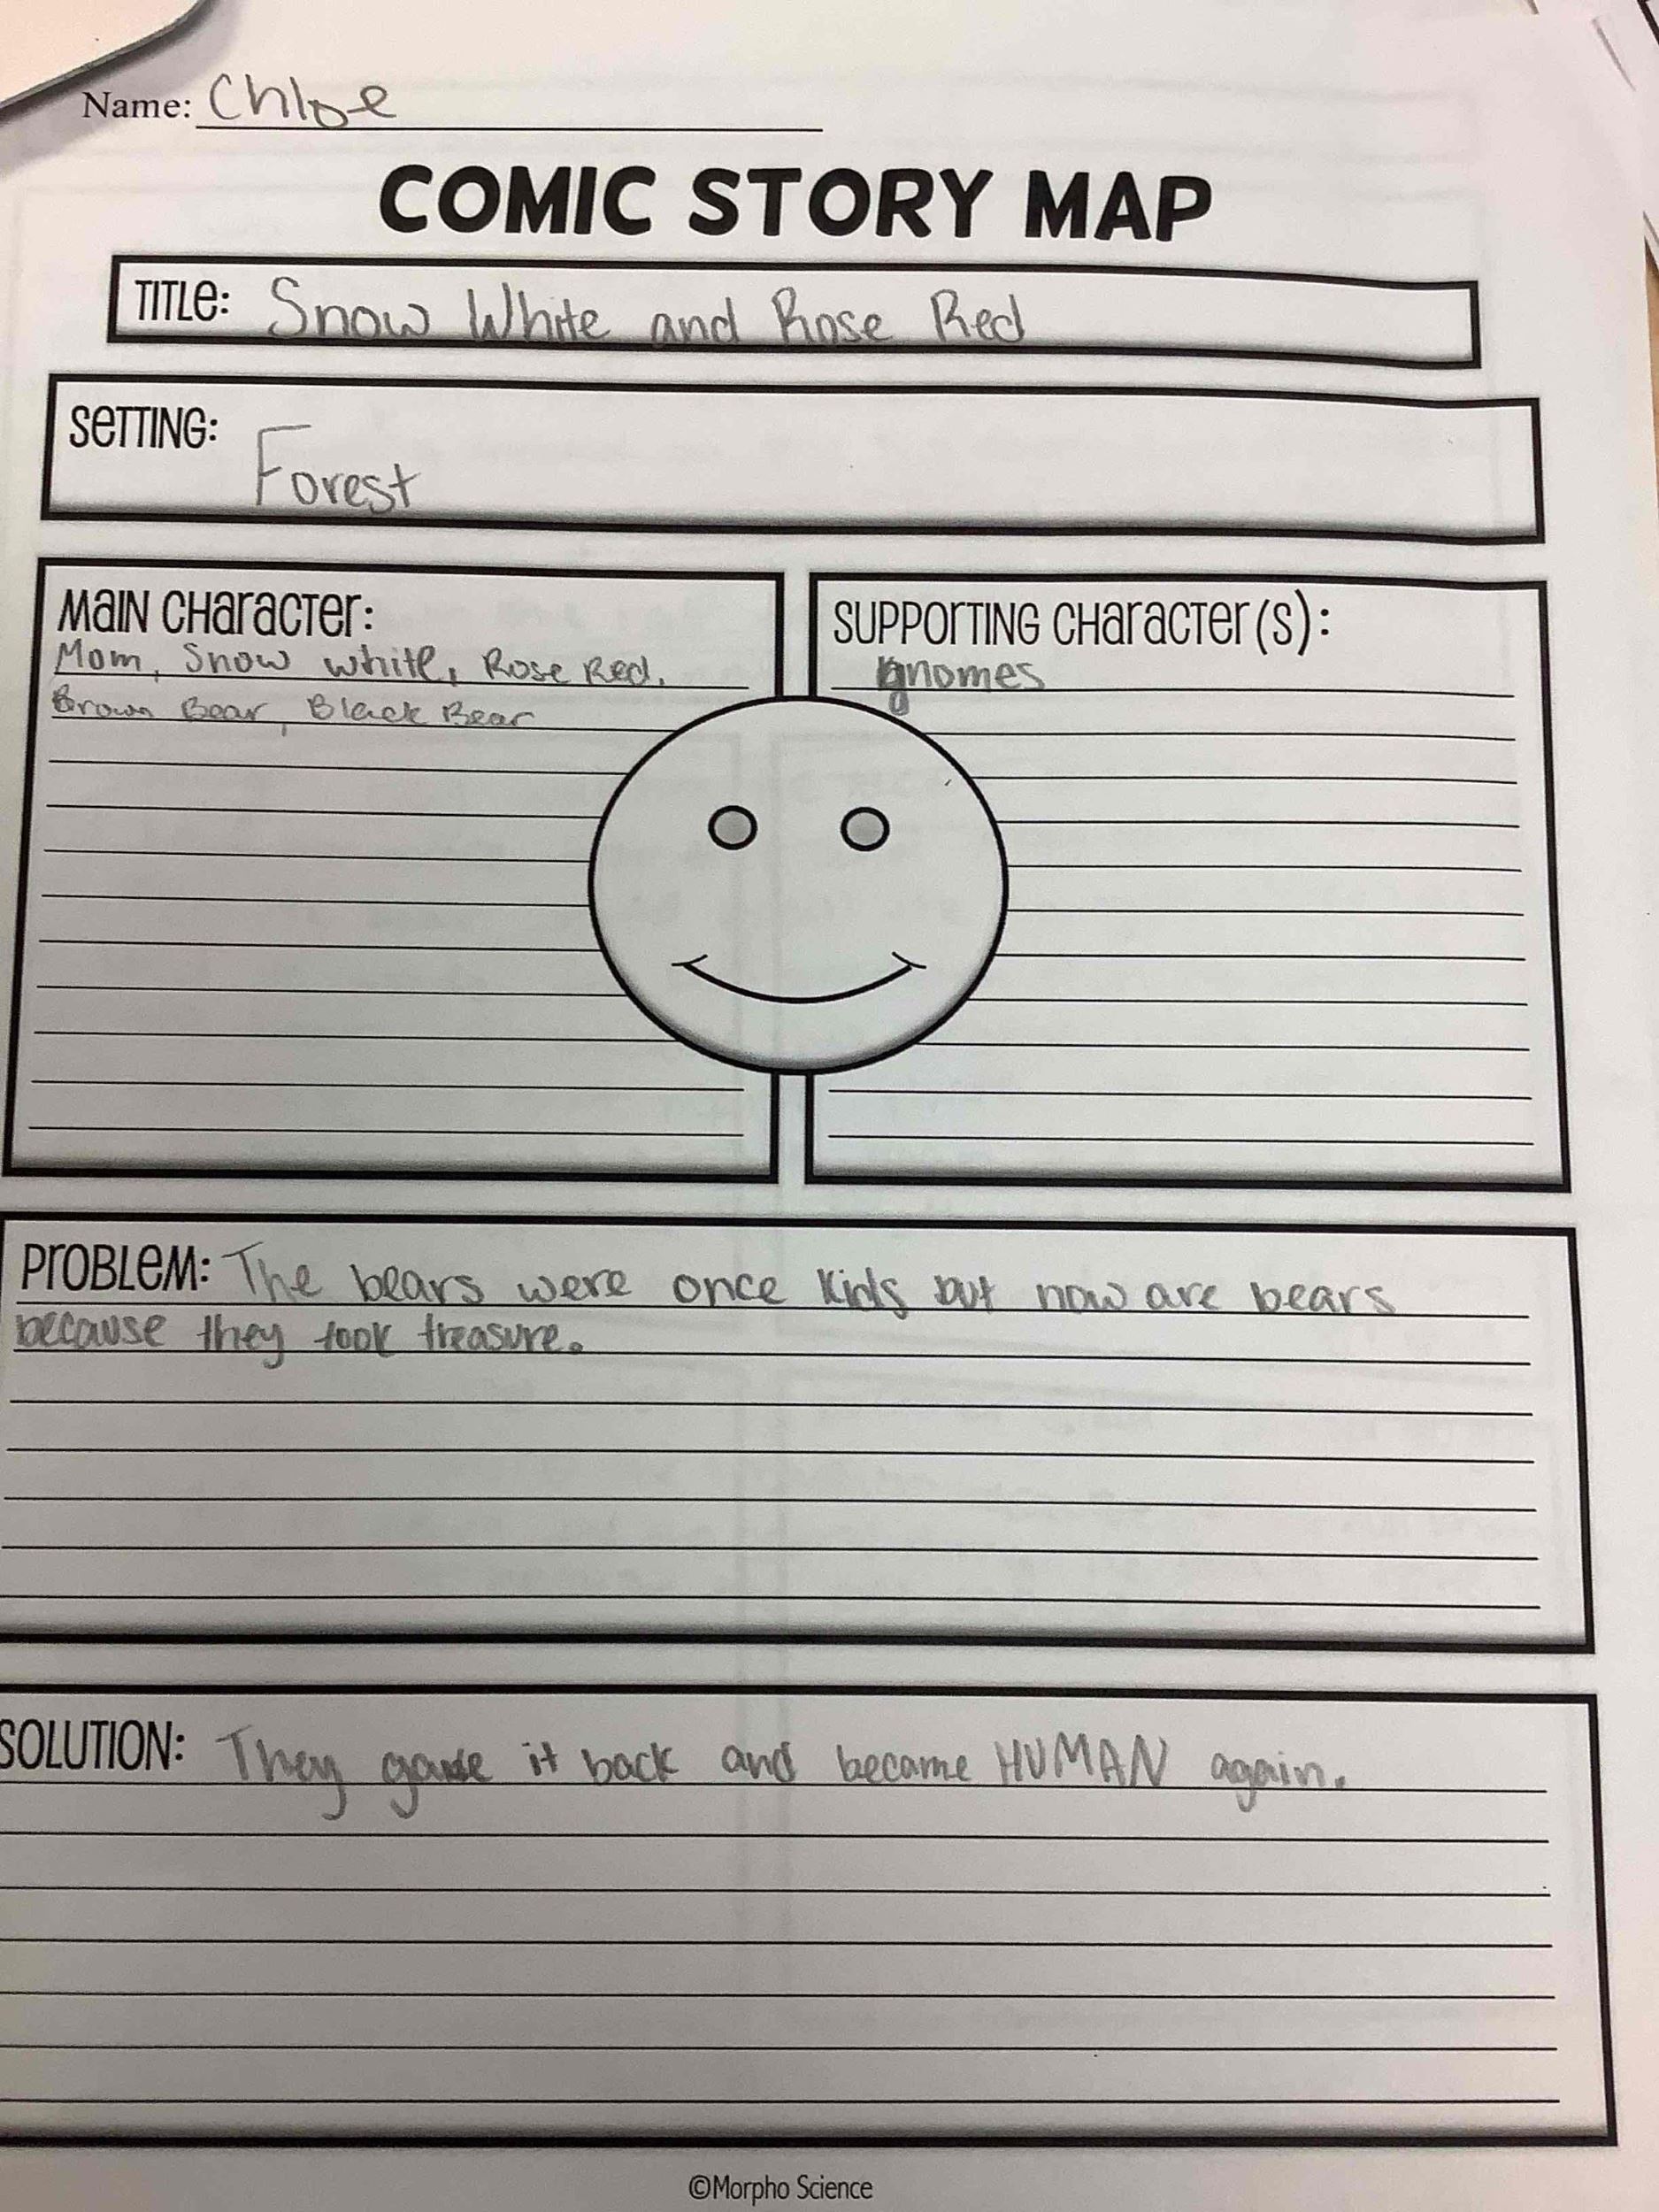 Name: Chloe
COMIC STORY MAP
TITLE: Snow White and Rose Red
SETTING:
Forest
MAIN CHARACTER:
Mom, Snow white, Rose Red,
Brown Bear, Black Bear
SUPPORTING CHARACTER(S):
gnomes
PROBLEM: The bears were once kids but now are bears
because they took treasure.
SOLUTION: They gave it back and became HUMAN again.
©Morpho Science